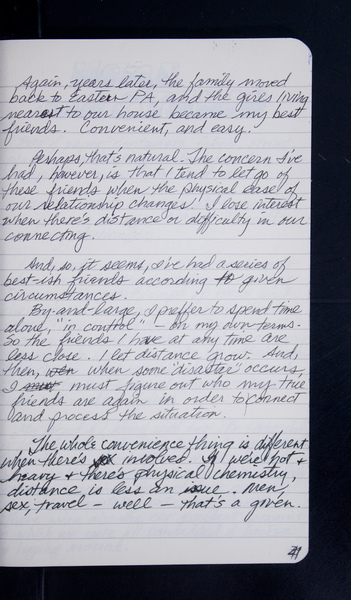 Again, years later, the family moved
back to Eastern PA, and the girls living
nearest to our house became my best
friends. Convenient, and easy.
Perhaps, that's natural. The concern I've
had, however, is that I tend to let go of
these friends when the physical ease of
our relationship changes! I lose interest
when there's distance or difficulty in our
connecting.
And, so, it seems, I've had a series of
best-ish friends according to given
circumstances.
By-and-large, I preffer to spend time
alone, "in control" - on my own terms.
So the friends I have at any time are
less close. I let distance grow. And,
then, when some "disaster" occurs,
I must figure out who my true
friends are again in order to connect
and process the situation.
The whole convenience thing is different
when there's sex involved. If we're hot +
heavy + there's physical chemistry,
distance is less an issue. Men,
sex, travel - well - that's a given.